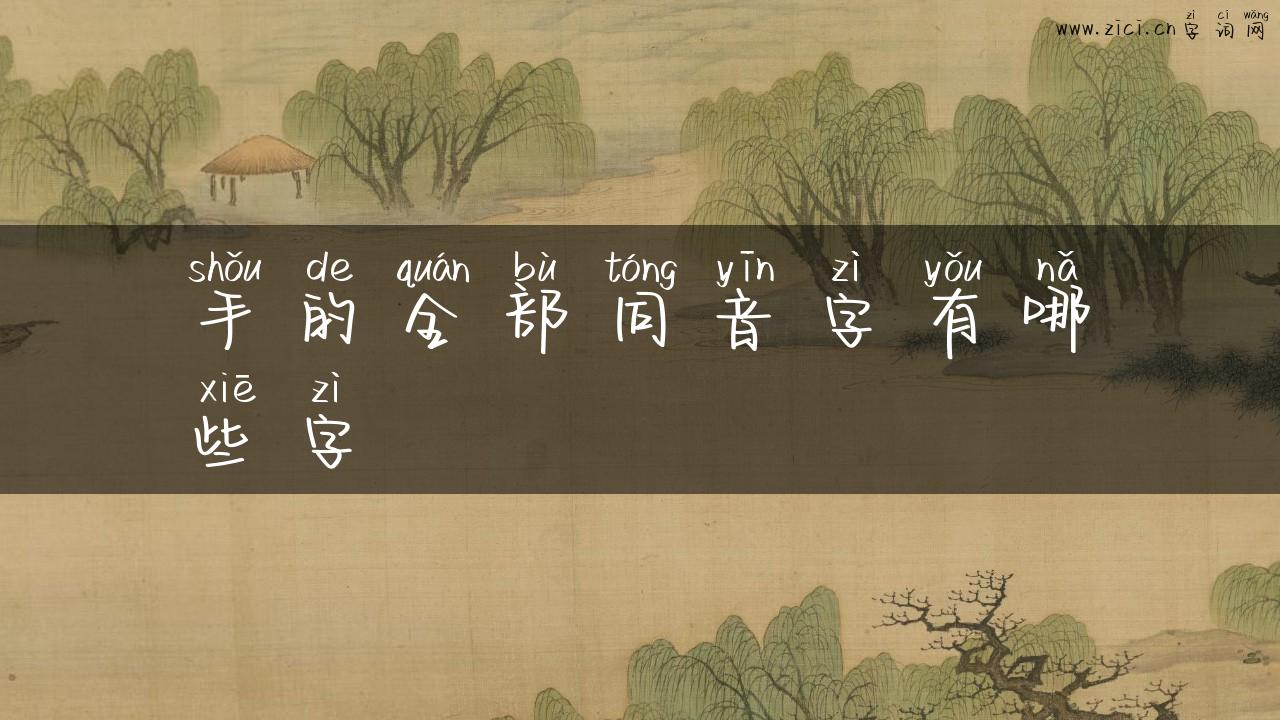 zì cí wǎng
www.zici.cn字词网
shǒu de quán bù tóng yīn zì yǒu nǎ
手的全部同音字有哪
xiē zì
些字